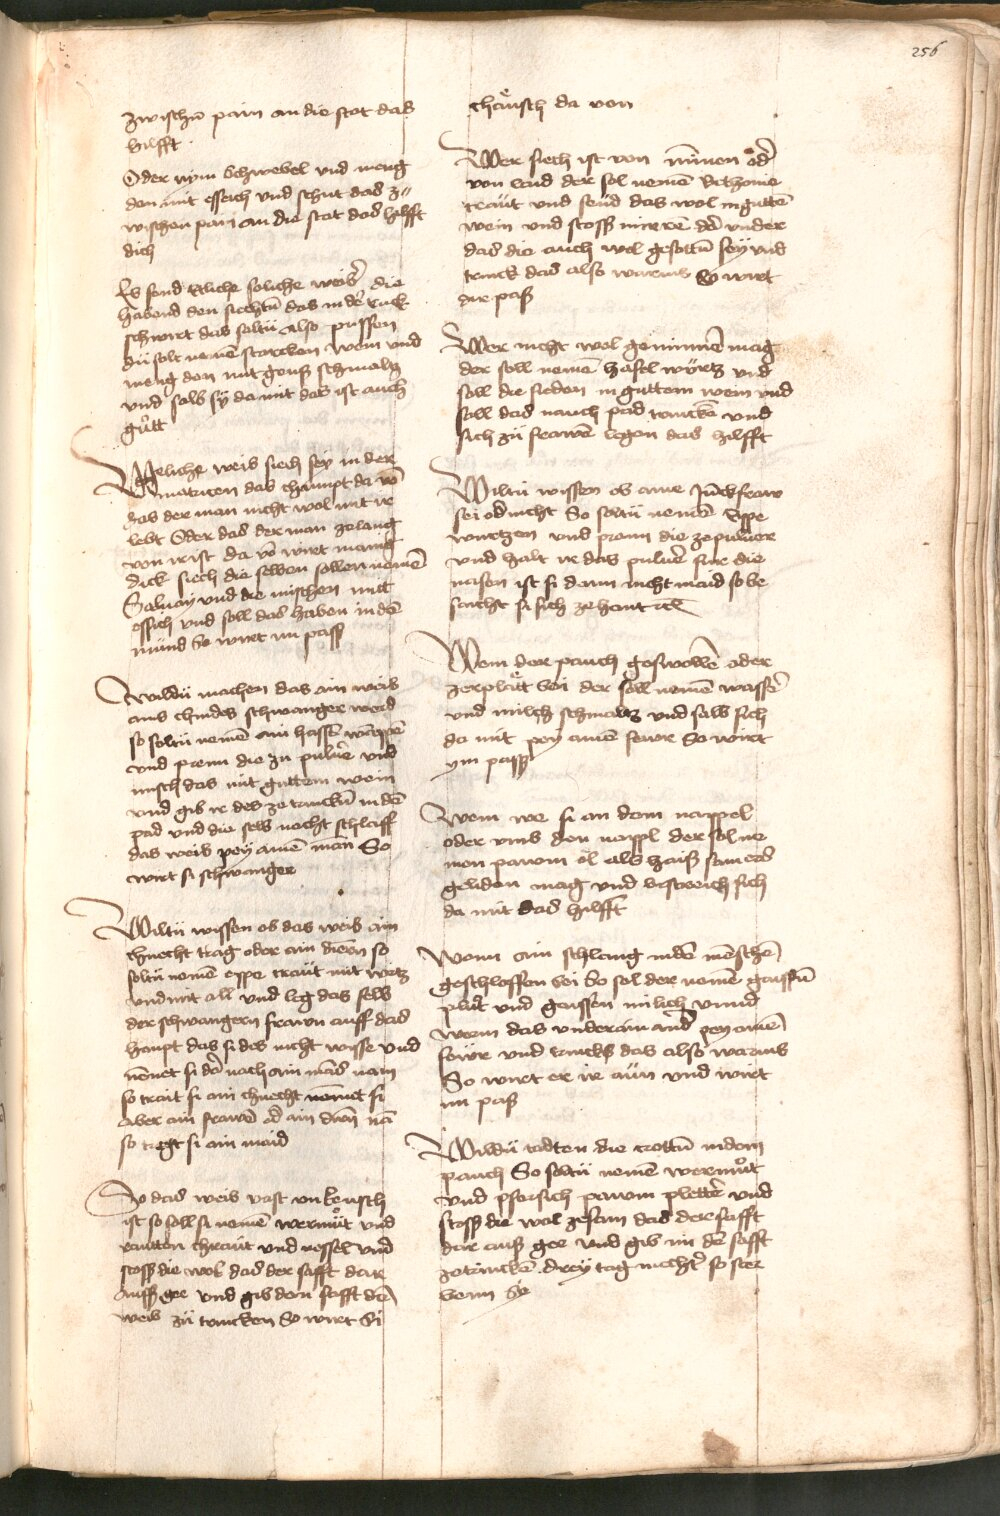 256
zwischn̄ pain an die stat das
hilfft
Oder nym schwebel vnd meng
den mit essich vnd schut das z⸗
wischen pain an die stat das hilfft
dich
Es send ettliche soliche weibꝰ die
habend den siechtū das in dꝰ ruck
schwirt das soltü also püssen
dü solt nemē starcken wein vnd
meng den mit genß schmaltz
vnd salb sy da mit das ist auch
gůtt
Weliche weib siech sey in der
matricen das chumpt da vō
das der man nicht wol mit ir
lebt Oder das der man zelang
von ir ist da vō wirt manig
dick siech die selben sollen nemē
Saluay vnd die mischen mitt
essich vnd soll das haben in dē
mund So wirt im pass
Wildü machen das ain weib
ains chindes schwanger werd
so soltü nemē ain hassen wāppē
vnd prenn die zu puluꝰ vnd
misch das mit guttem wein
vnd gib ir des ze trinckn̄ in dē
pad vnd die selb nacht schlaff
das weib pey ainē man So
wirt si schwanger
Wiltü wissen ob das weib ain
chnecht trag oder ain diern so
soltü nemē eppe craut mit wirtz
vnd mit all vnd leg das selb
der schwangern frawn auff das
haupt das si des nicht wisse vnd
nēmet si dꝰ nach ain mās nam
so trait si ain chnecht nēmet si
aber ain frawē od ain diern nā
so tregt si ain maid
So das weib vast vnkeusch
ist so soll si nemē wermůt vnd
rautten chraut vnd nessel vnd
stoss die wol das der safft dar
auss gee vnd gib den safft dē
weib zü trincken So wirt si
chäusch da von
Wer siech ist von minen odꝰ
von laid der sol nemē Bethonie
craut vnd seud das wol in guttē
wein vnd stoss mirrē dꝰ vnder
das die auch wol gesottn̄ sey vnd
trinck das also warms So wirt
dir pass
Wer nicht wol geminnē mag
der soll nemē hasel würtz vnd
soll die sieden in guttem wein vnd
soll das nauch pad trinckē vnd
sich zü frawē legen das hilfft
Wiltü wissen ob aine Junckfraw
sei od nicht So soltü nemē Eppe
wurtzen vnd prenn die ze puluer
vnd halt ir das puluꝰ fur die
nasen ist si dann nicht maid so be
saicht si sich zehant
Wem der pauch geswollē oder
zerplätt sei der soll nemē wassꝰ
vnd milch schmaltz vnd salb sich
da mit pey ainē fewr So wirt
ym pass
Wem we si an dem nappel
oder vmb den nappl der sol ne
men pawm öl als haiß sam ers
geliden mag vnd bestreich sich
da mit das hilfft
Wenn ain schlang in dē mēschē
geschloffen sei So sol der nemē gaissn̄
plůt vnd gaissen milich vnnd
wein das vnder ain andꝰ pey ainē
fewr vnd trincks das also warms
So wirt er ir aün vnd wirt
im paß
Wildü tödten die crottn̄ in dem
pauch So soltü nemē wermůt
vnd pfersich pawm plettꝰ vnd
stoss die wol zesam das der safft
dar auß gee vnd gib im dē safft
ze trinckē drey tag nüchtꝰ so ster
benn sie